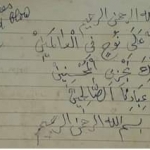 Blow
الله الرحمن الرحيم
عَلَى نُوحٍ فِي الْعَالَمِينَ
نَجْزِي الْمُحْسِنِينَ
عِبَادِنَا الصَّالِحِينَ
بِسْمِ اللهِ الرحمن الرحيم